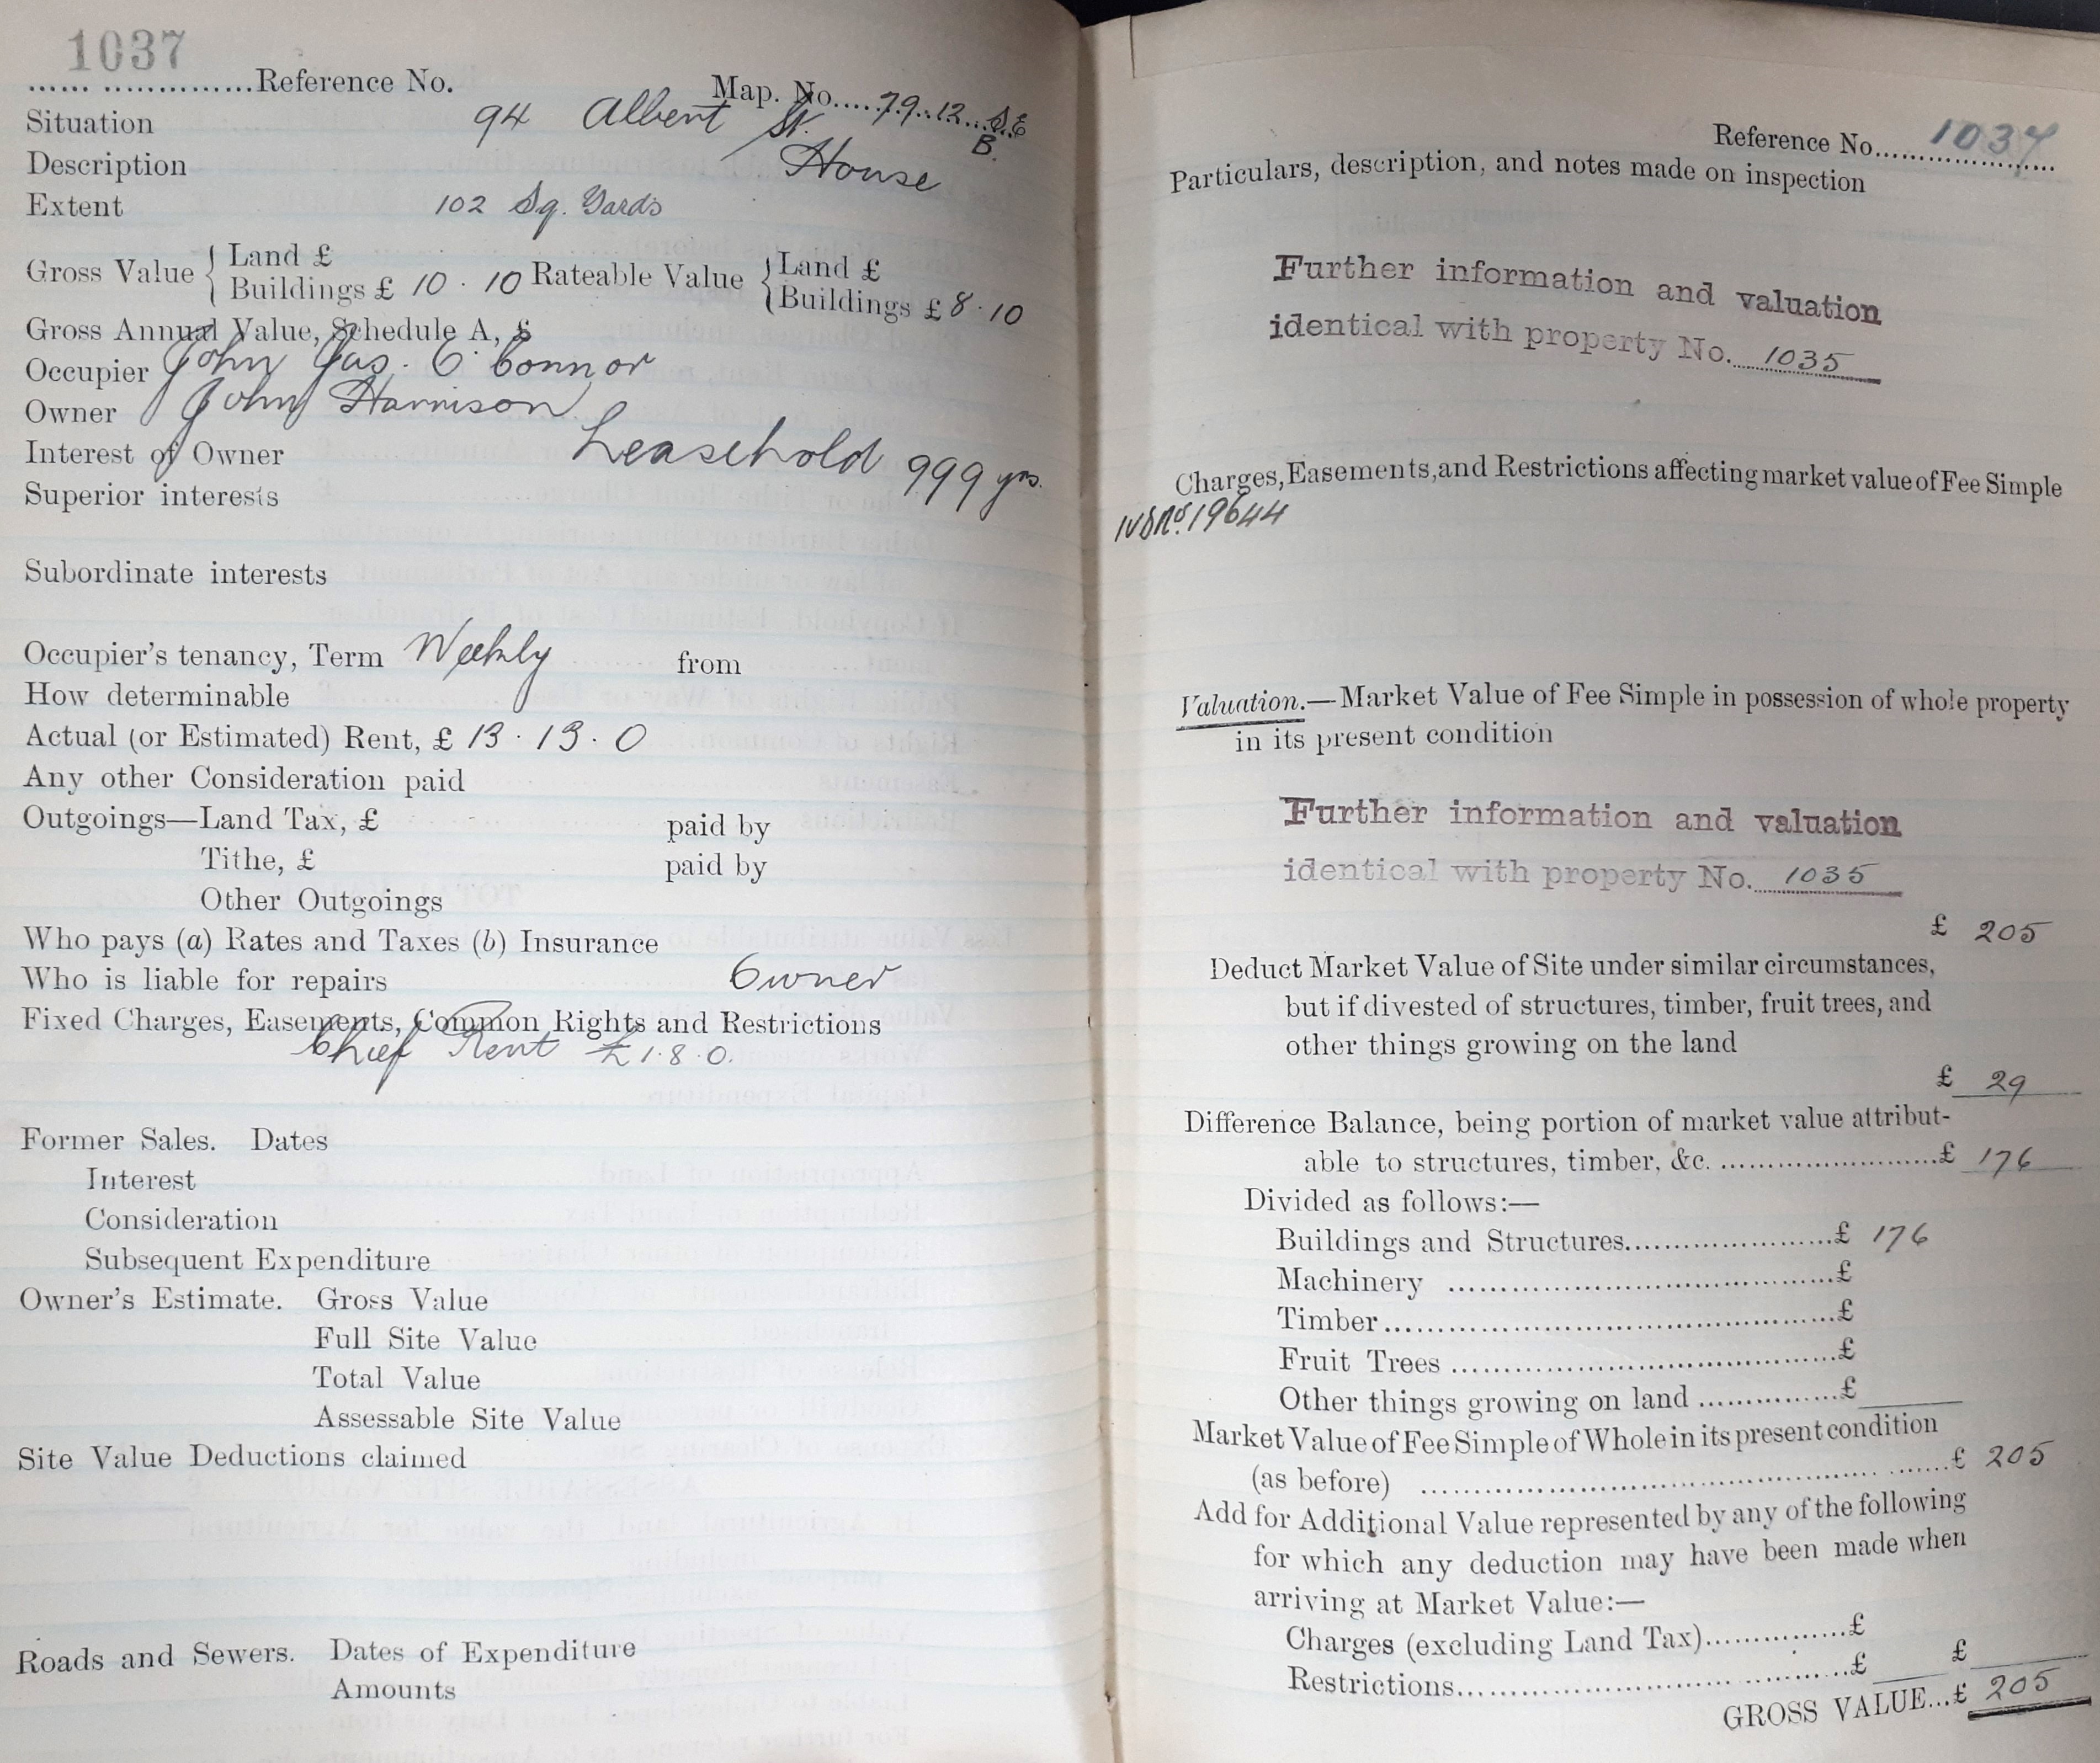 1037
...... ...............Reference No.
Map. No.....79..12...S.E
B.
Situation 94 Albert St.
Description House
Extent 102 Sq. Yards
Gross Value { Land £
Buildings £ 10 . 10 Rateable Value { Land £
Buildings £ 8 . 10
Gross Annual Value, Schedule A, £
Occupier John Jas. O'Connor
Owner John Harrison
Interest of Owner Leasehold 999 yrs.
Superior interests
Subordinate interests
Occupier's tenancy, Term Weekly from
How determinable
Actual (or Estimated) Rent, £ 13 . 13 . 0
Any other Consideration paid
Outgoings—Land Tax, £ paid by
Tithe, £ paid by
Other Outgoings
Who pays (a) Rates and Taxes (b) Insurance
Who is liable for repairs Owner
Fixed Charges, Easements, Common Rights and Restrictions
Chief Rent £1.8.0.
Former Sales. Dates
Interest
Consideration
Subsequent Expenditure
Owner's Estimate. Gross Value
Full Site Value
Total Value
Assessable Site Value
Site Value Deductions claimed
Roads and Sewers. Dates of Expenditure
Amounts
Reference No. 1037
Particulars, description, and notes made on inspection
Further information and valuation
identical with property No. 1035
Charges, Easements, and Restrictions affecting market value of Fee Simple
19644
Valuation.—Market Value of Fee Simple in possession of whole property
in its present condition
Further information and valuation
identical with property No. 1035
£ 205
Deduct Market Value of Site under similar circumstances,
but if divested of structures, timber, fruit trees, and
other things growing on the land
£ 29
Difference Balance, being portion of market value attribut-
able to structures, timber, &c. ........................£ 176
Divided as follows:—
Buildings and Structures......................£ 176
Machinery ..........................................£
Timber.................................................£
Fruit Trees ..........................................£
Other things growing on land ...............£
Market Value of Fee Simple of Whole in its present condition
(as before) ..................................................£ 205
Add for Additional Value represented by any of the following
for which any deduction may have been made when
arriving at Market Value:—
Charges (excluding Land Tax)...............£
Restrictions..........................................£ £
GROSS VALUE...£ 205